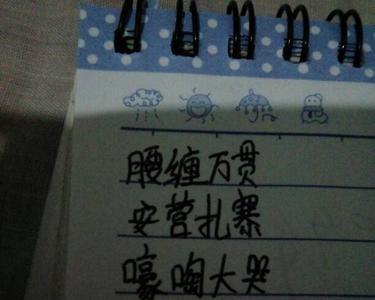 腰缠万贯
安营扎寨
嚎啕大哭